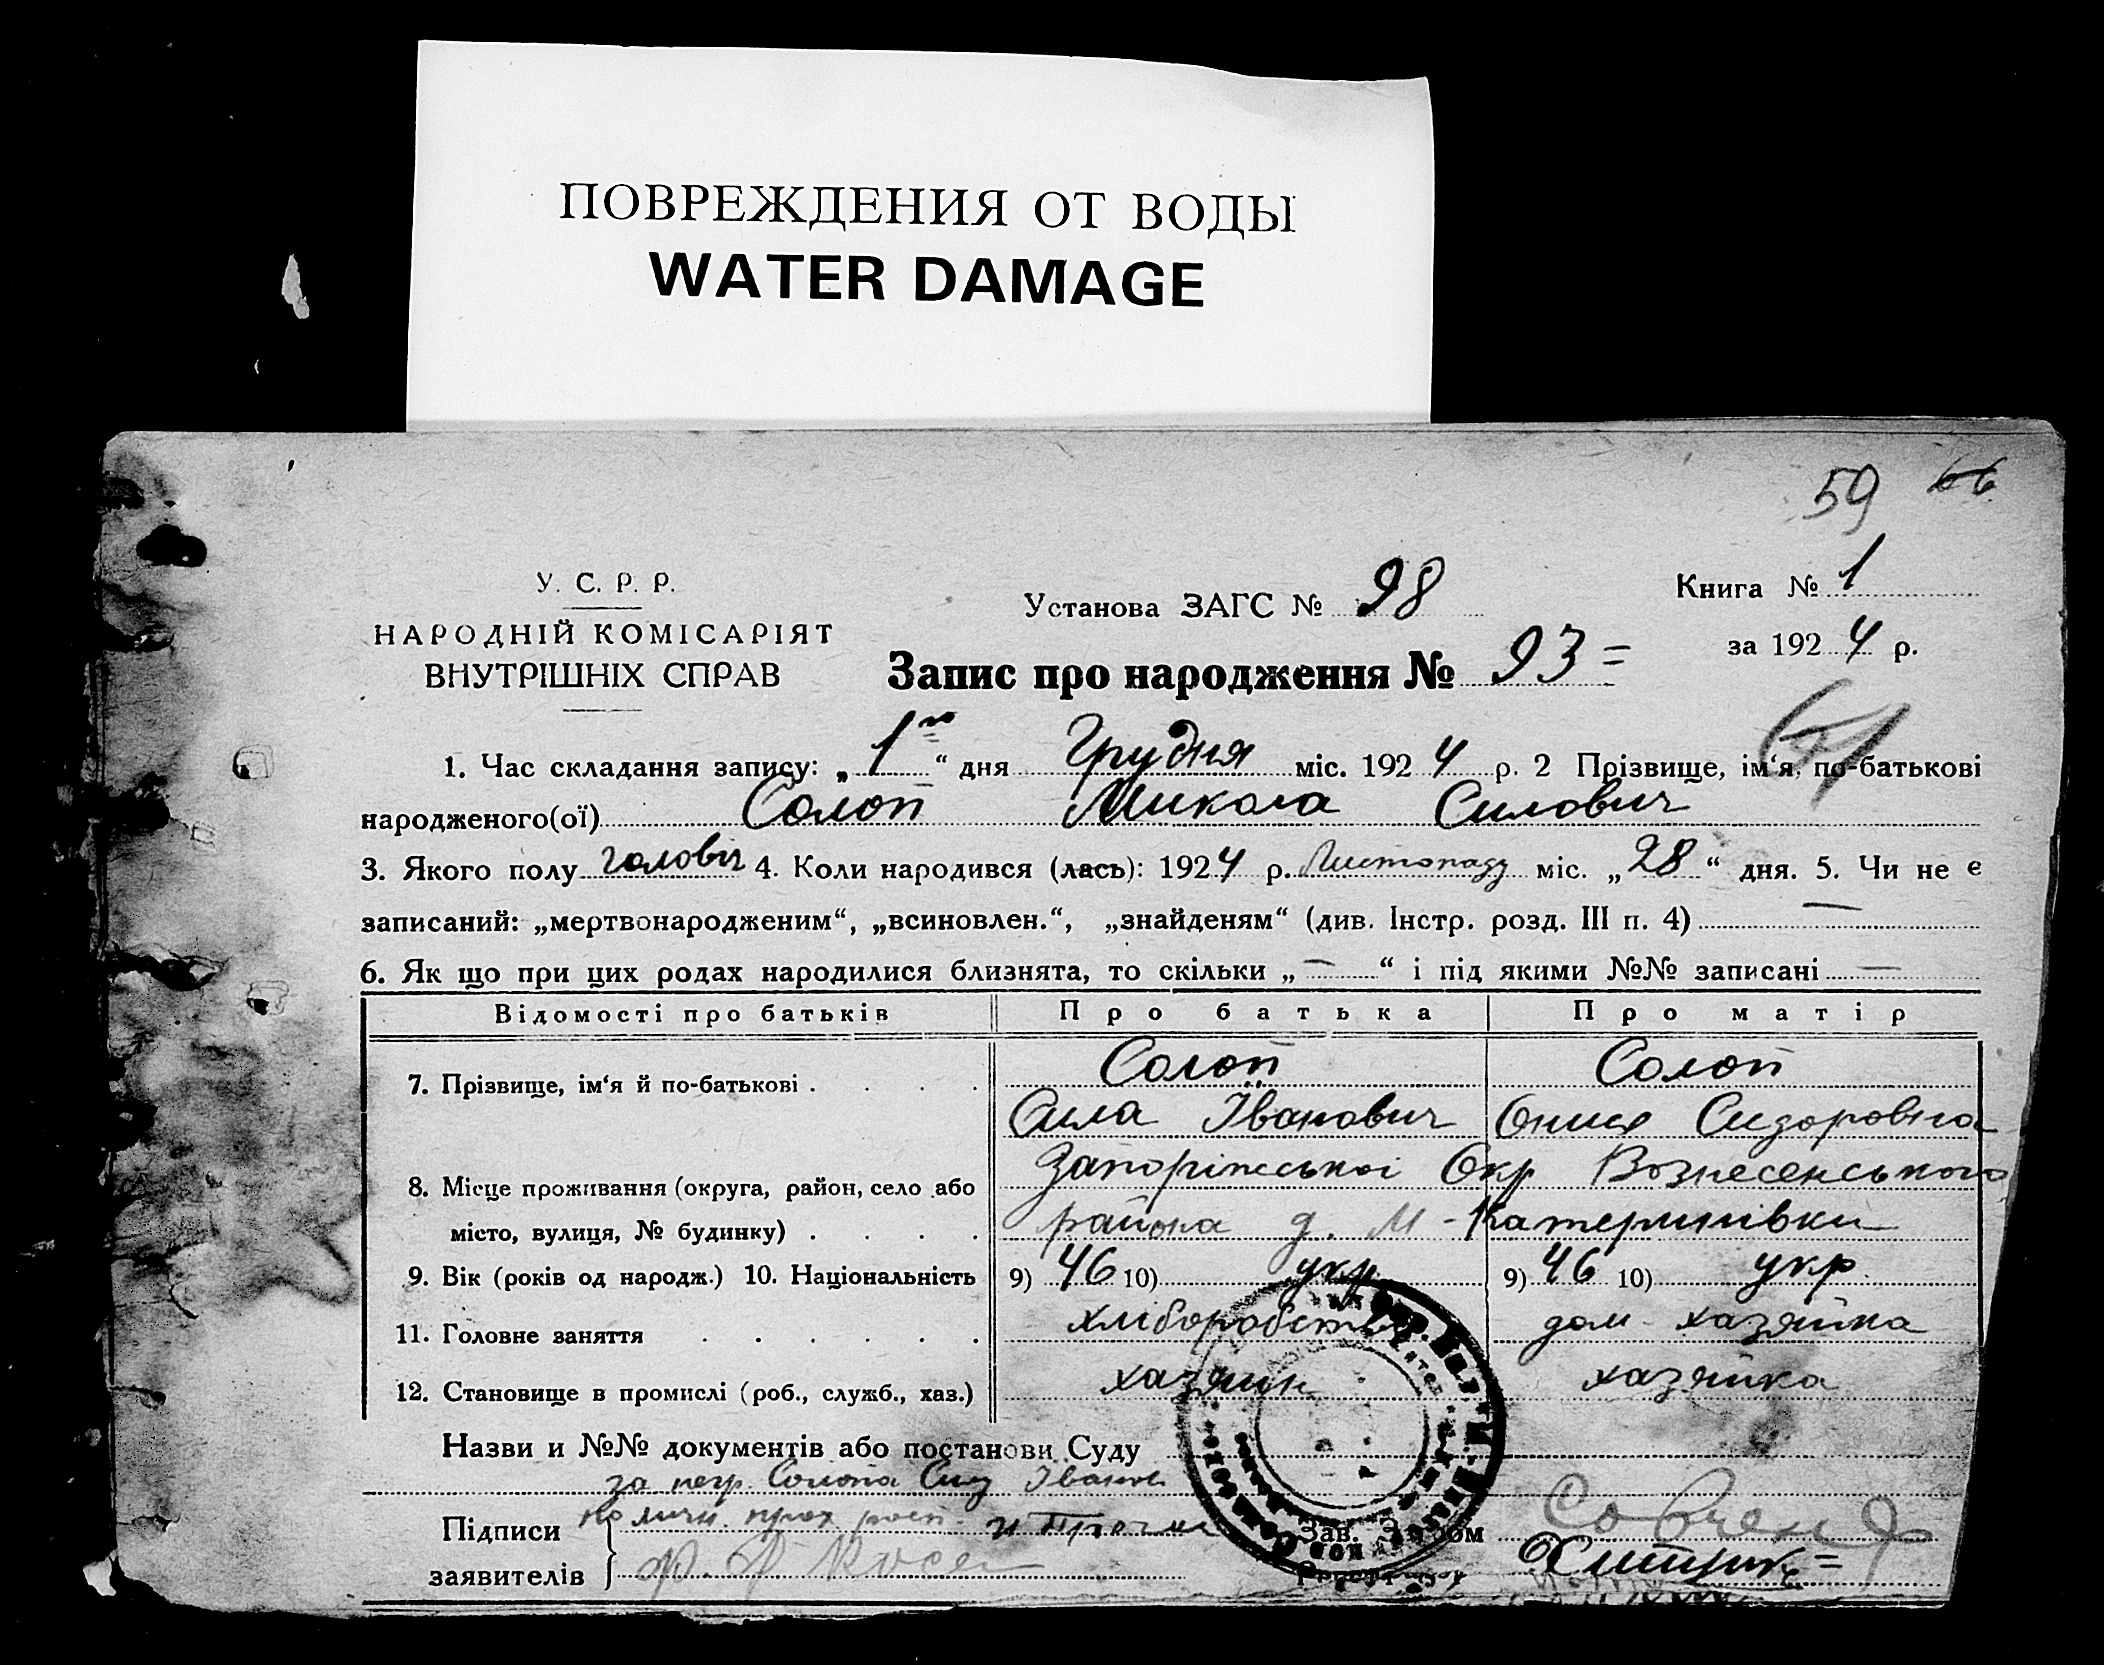 ПОВРЕЖДЕНИЯ ОТ ВОДЫ
WATER DAMAGE
59 66
У. С. Р. Р.
НАРОДНІЙ КОМІСАРІЯТ
ВНУТРІШНІХ СПРАВ
Установа ЗАГС № 98
Книга № 1
за 1924 р.
Запис про народження № 93 =
1. Час складання запису: „1го“ дня Грудня міс. 1924 р. 2 Прізвище, ім'я, по-батькові
народженого(ої) Солоп Микола Силович
3. Якого полу чоловіч 4. Коли народився (лась): 1924 р. Листопаду міс. „28“ дня. 5. Чи не є
записаний: „мертвонародженим“, „всиновлен.“, „знайденям“ (див. Інстр. розд. III п. 4) —
6. Як що при цих родах народилися близнята, то скільки „—“ і під якими №№ записані —
Відомості про батьків Про батька Про матір
7. Прізвище, ім'я й по-батькові . . . . Солоп Солоп
Сила Іванович Ониця Сидоровна
8. Місце проживання (округа, район, село або Запоріжської Окр Вознесенського
місто, вулиця, № будинку) . . . . района д. М-Катеринівки
9. Вік (років од народж.) 10. Національність 9) 46 10) укр 9) 46 10) укр.
11. Головне заняття . . . . . . хліборобство дом. хазяйка
12. Становище в промислі (роб., служб., хаз.) хазяин хазяйка
Назви и №№ документів або постанови Суду
за негр. Солопа Силу Іванов
Підписи
заявителів
Зав. Загсом